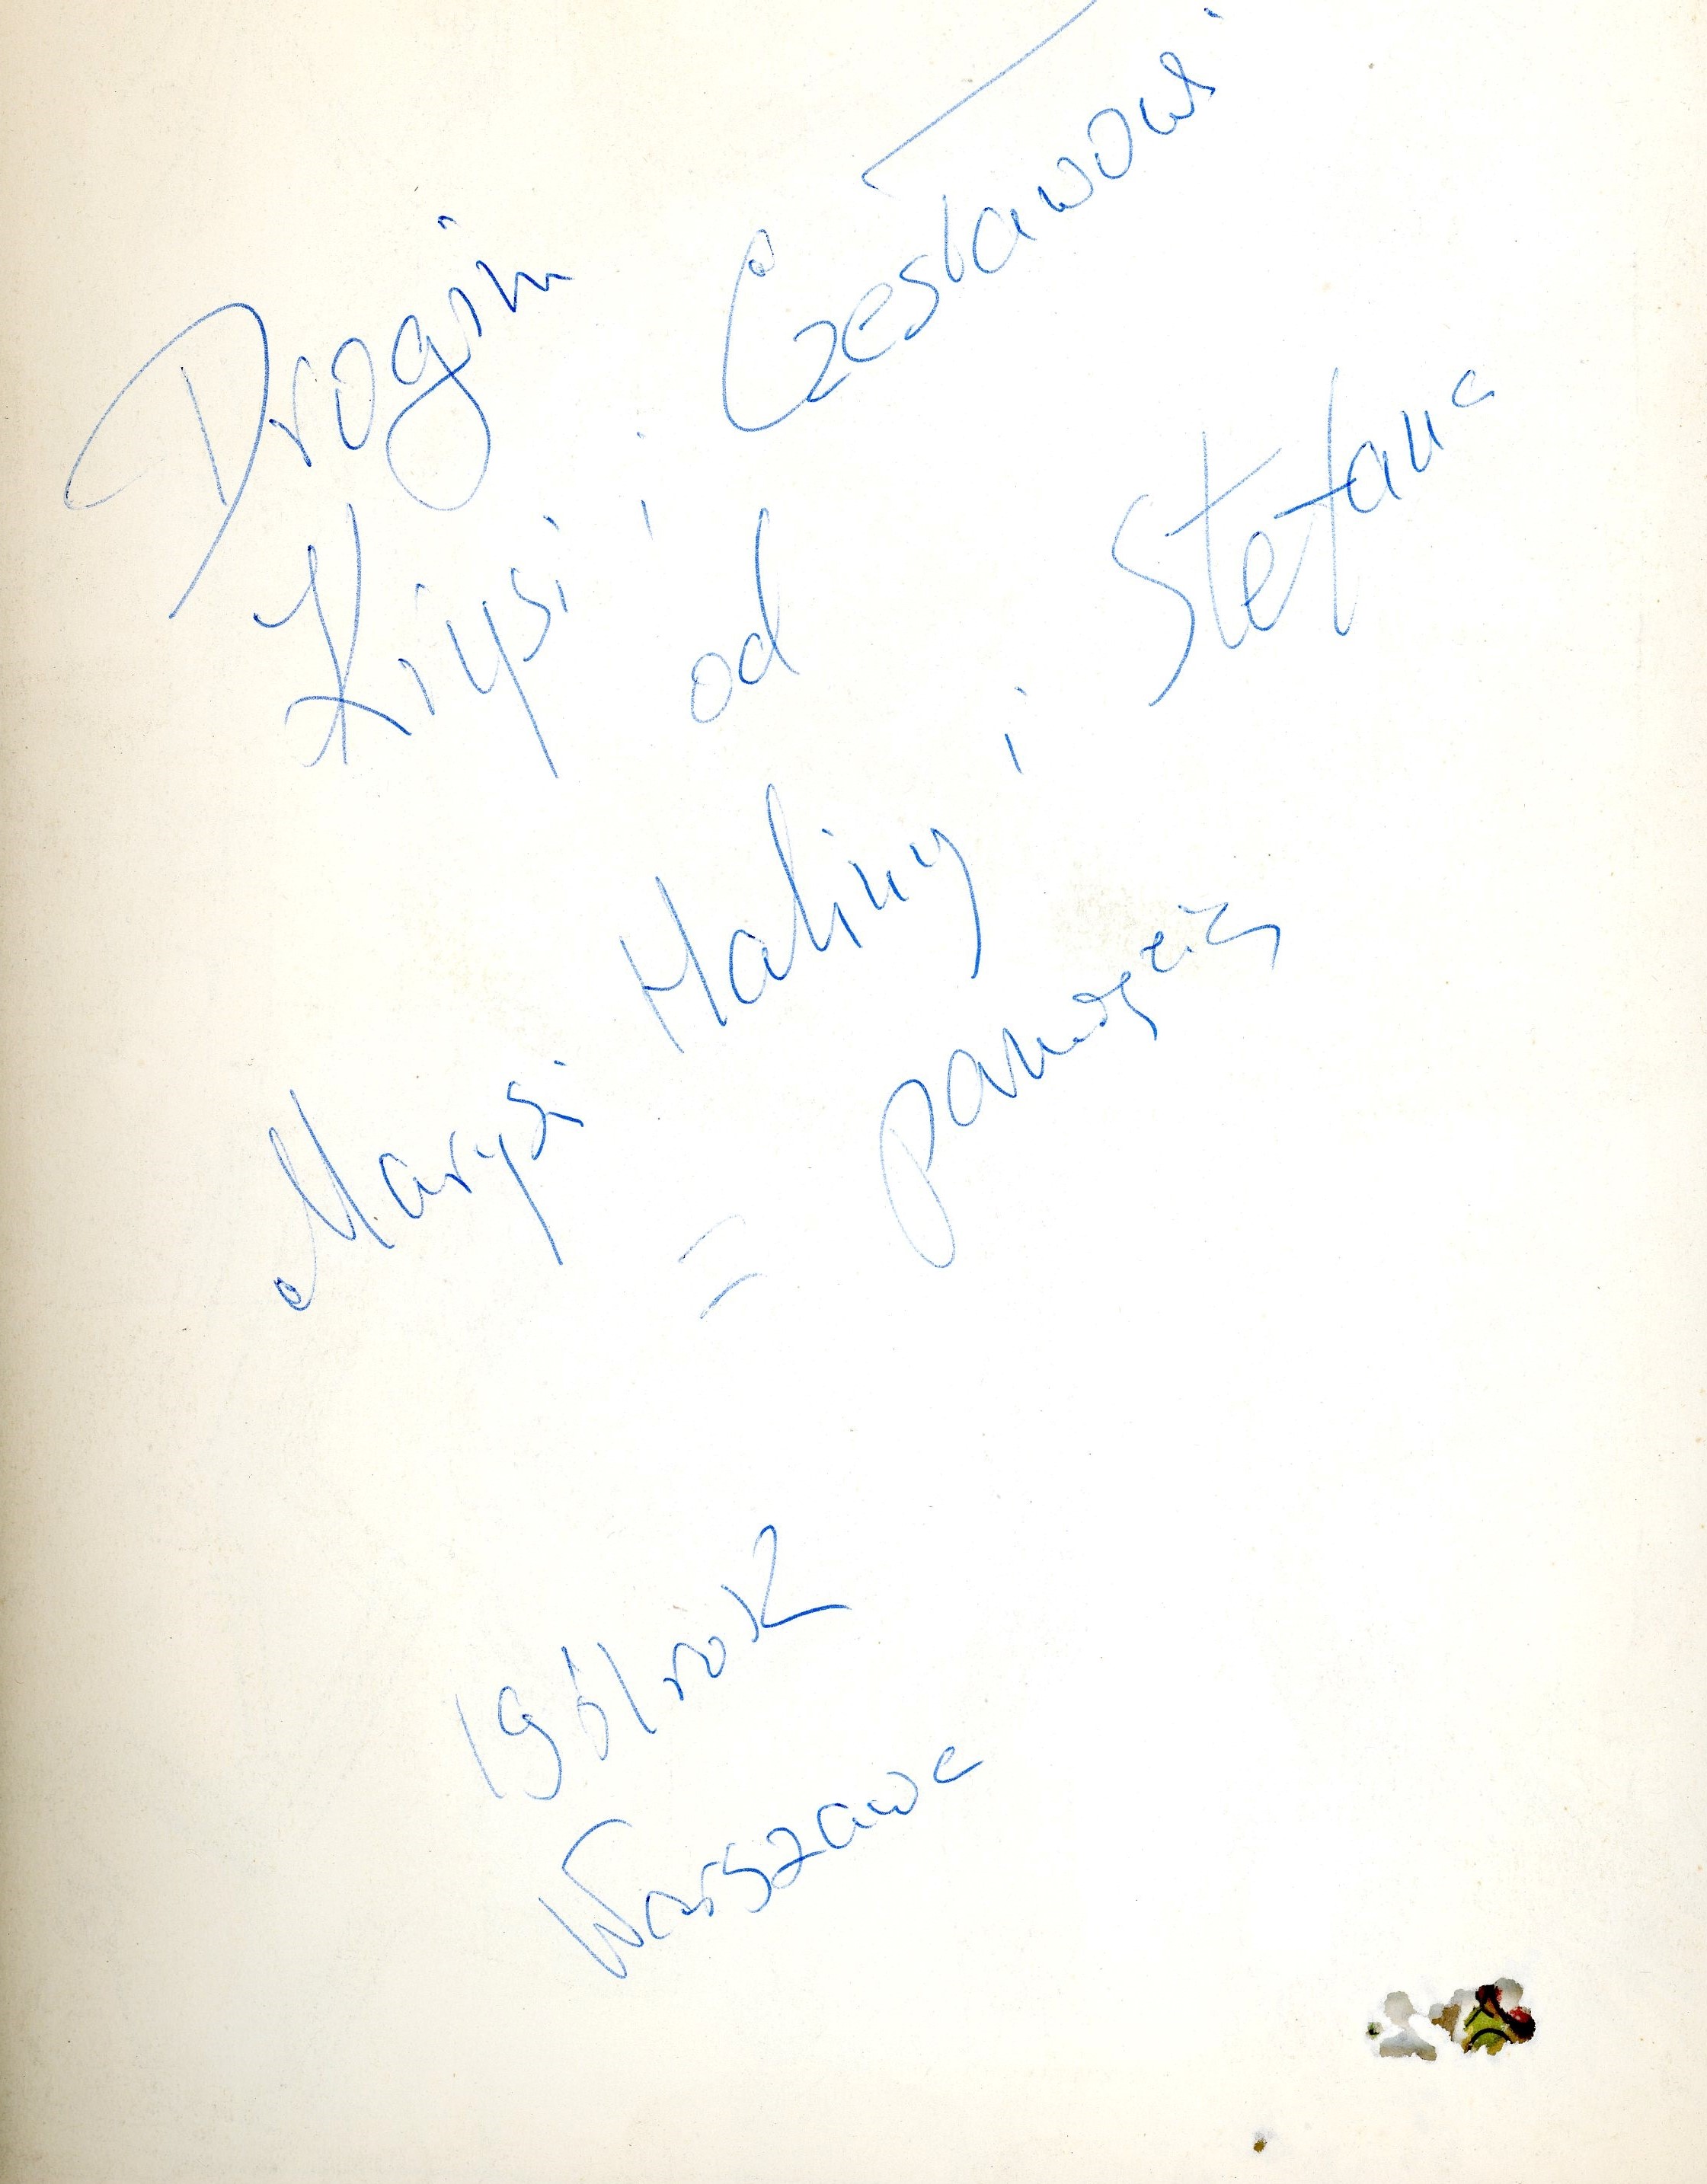 Drogim
Krysi i Czesławowi
od
Marysi Haliny i Stefana
=
1961 rok
Warszawa